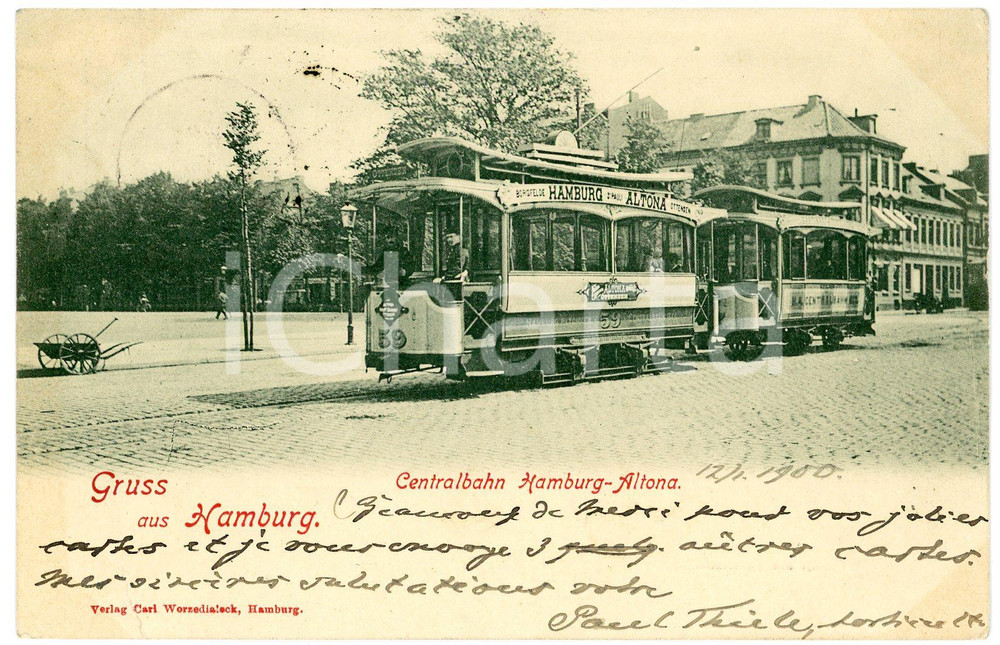 BORGFELDE HAMBURG ST PAULI ALTONA OTTENSEN
ALTONA
OTTENSEN
59
59
H.A. CENTRALBAHN
iCharta
Gruss
aus Hamburg.
Centralbahn Hamburg-Altona.
12/1. 1900.
de merci pour vos jolies
cartes et je vous envoye 3 autres cartes.
Mes sincères salutations votre
Paul Thiele,
Verlag Carl Worzedialeck, Hamburg.